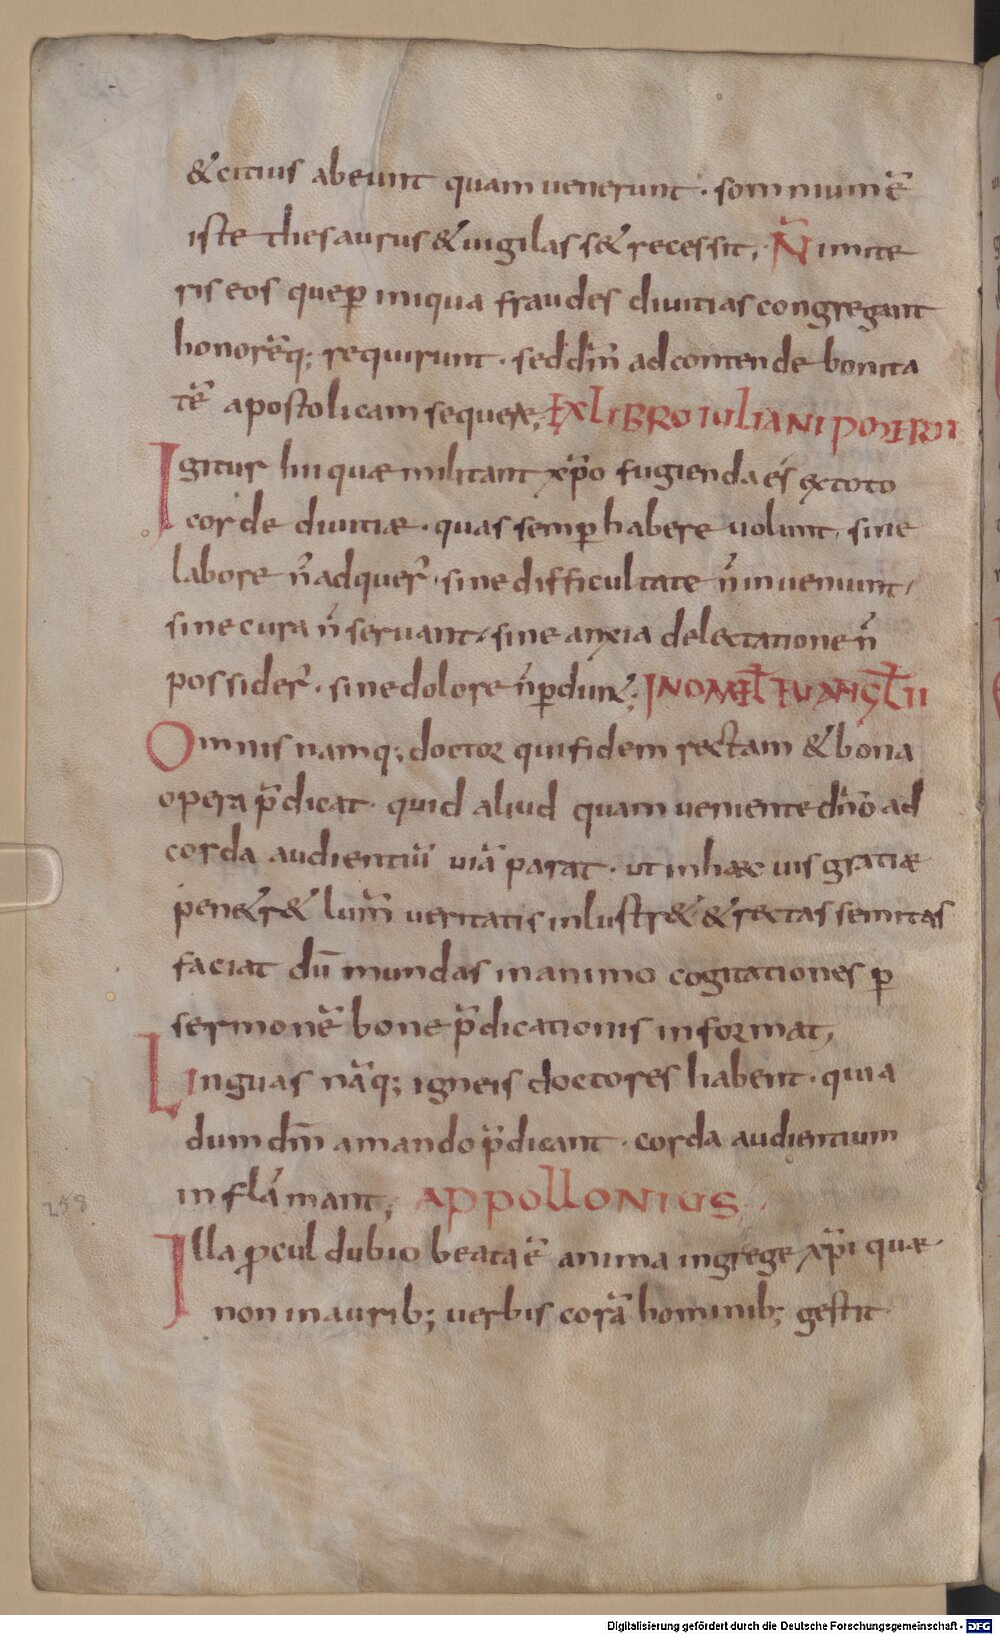 &citius abeunt quam venerunt · somnium ē
iste thesaurus & uigilas s& recessit; Ñ imite
ris eos que ꝑ iniqua fraudes diuitias congregant
honorēq; requirunt · sed dñi ad contende bonita
tē apostolicam sequere; EX LIBRO IULIANI POMERII
Igitur hii quae militant xp̄o fugienda es̄ ex toto
corde diuitiae · quas semꝑ habere uolunt · sine
labore ñ adquer̄ · sine difficultate ñ inueniunt,
sine cura ñ seruant, sine anxia delectatione ñ
possider̄ · sine dolore ñ ꝑdunt; IN OMEL̄ EUANGL̄II
Omnis namq; doctor qui fidem rectam & bona
opera p̄dicat · quid aliud quam ueniente dño ad
corda audientiū uiā parat · ut in haec uis gratiae
penetr& lum̄ ueritatis inlustr& & rectas semitas
faciat dū mundas in animo cogitationes ꝑ
sermonē bone p̄dicationis informat,
Linguas nāq; igneis doctores habent · quia
dum dm̄ amando p̄dicant · corda audientium
inflāmant; APPOLLONIUS
Illa ꝓcul dubio beata ē anima in grege xp̄i quae
non in aurib; uerbis corā hominib; gestit
258
Digitalisierung gefördert durch die Deutsche Forschungsgemeinschaft - DFG